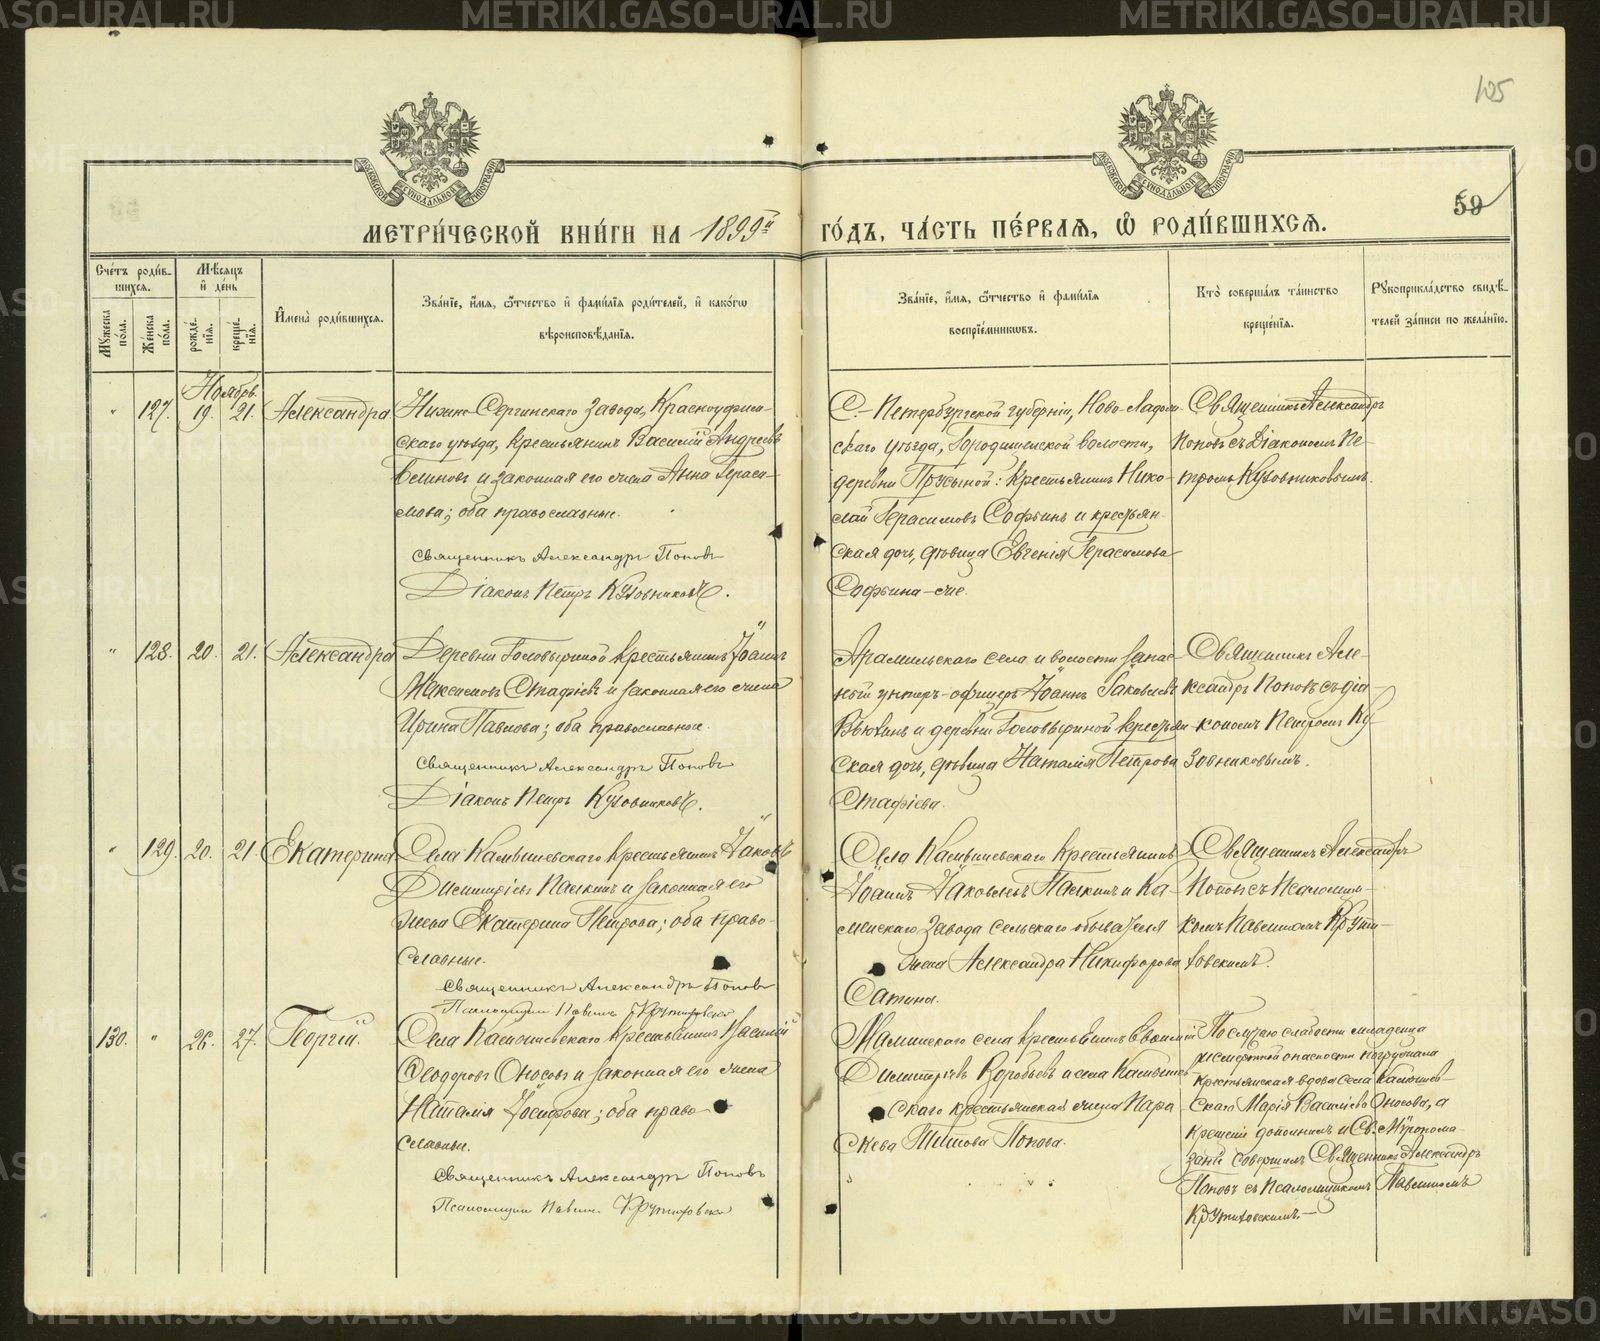 METRIKI.GASO-URAL.RU
105
59
МЕТРИ́ЧЕСКОЙ КНИ́ГИ НА 1899й ГО́ДЪ, ЧА́СТЬ ПЕ́РВАЯ, Ѡ РОДИ́ВШИХСЯ.
Сче́тъ роди́в-
шихся.
Му́жеска по́ла.
Же́нска по́ла.
Мѣ́сяцъ
и҆ де́нь
рожде́-
нїя.
креще́-
нїя.
И҆мена̀ роди́вшихся.
Зва́нїе, и҆́мя, ѻ҆́тчество и҆ фами́лїя роди́телей, и҆ како́гѡ
вѣроисповѣ́данїя.
Зва́нїе, и҆́мя, ѻ҆́тчество и҆ фами́лїя
воспрїе́мникѡвъ.
Кто̀ соверша́лъ та́инство
креще́нїя.
Рꙋкоприкла́дство свидѣ́-
телей за́писи по жела́нїю.
Ноябрь.
" 127. 19. 21. Александра
Нижне-Сергинскаго завода, Красноуфим-
скаго уѣзда, крестьянинъ Василій Андреевъ
и законная его жена Анна Гераси-
мова; оба православные.
Священникъ Александръ Поповъ
Діаконъ Петръ Кузовниковъ.
С.-Петербургской губерніи, Ново-Ладож-
скаго уѣзда, Городищенской волости,
деревни : крестьянинъ Нико-
лай Герасимовъ Софьинъ и крестьян-
ская дочь, дѣвица Евгенія Герасимова
Софьина-же.
Священникъ Александръ
Поповъ съ Діакономъ Пе-
тромъ Кузовниковымъ.
" 128. 20. 21. Александра
Деревни Головыриной крестьянинъ Іоаннъ
Максимовъ Стафѣевъ и законная его жена
Ирина Павлова; оба православные.
Священникъ Александръ Поповъ
Діаконъ Петръ Кузовниковъ.
Арамильскаго села и волости запас-
ный унтеръ-офицеръ Іоаннъ Іаковлевъ
Вьюхинъ и деревни Головыриной крестьян-
ская дочь, дѣвица Наталія Петрова
Стафѣева.
Священникъ Але-
ксандръ Поповъ съ діа-
кономъ Петромъ Ку-
зовниковымъ.
" 129. 20. 21. Екатерина
Села Камышевскаго крестьянинъ Іаковъ
Димитріевъ и законная его
жена Екатерина Петрова; оба право-
славные.
Священникъ Александръ Поповъ
Псаломщикъ Павлинъ Крутиховскій
Села Камышевскаго крестьянинъ
Іоаннъ Іаковлевъ и Ка-
менскаго завода сельскаго обывателя
жена Александра Никифорова
Сатина.
Священникъ Александръ
Поповъ съ Псаломщи-
комъ Павлиномъ Крути-
ховскимъ.
130. " 26. 27. Георгій.
Села Камышевскаго крестьянинъ Василій
Ѳеодоровъ Оносовъ и законная его жена
Наталія Іосифова; оба право-
славные.
Священникъ Александръ Поповъ
Псаломщикъ Павлинъ Крутиховскій
Маминскаго села крестьянинъ Василій
Димитріевъ Воробьевъ и села Камышев-
скаго крестьянская жена Пара-
скева Титова Попова.
По случаю слабости младенца
и смертной опасности погружала
крестьянская вдова села Камышев-
скаго Марія Васильева Оносова, а
крещеніе дополнилъ и Св. Мѵропома-
заніе совершилъ Священникъ Александръ
Поповъ съ Псаломщикомъ Павлиномъ
Крутиховскимъ.